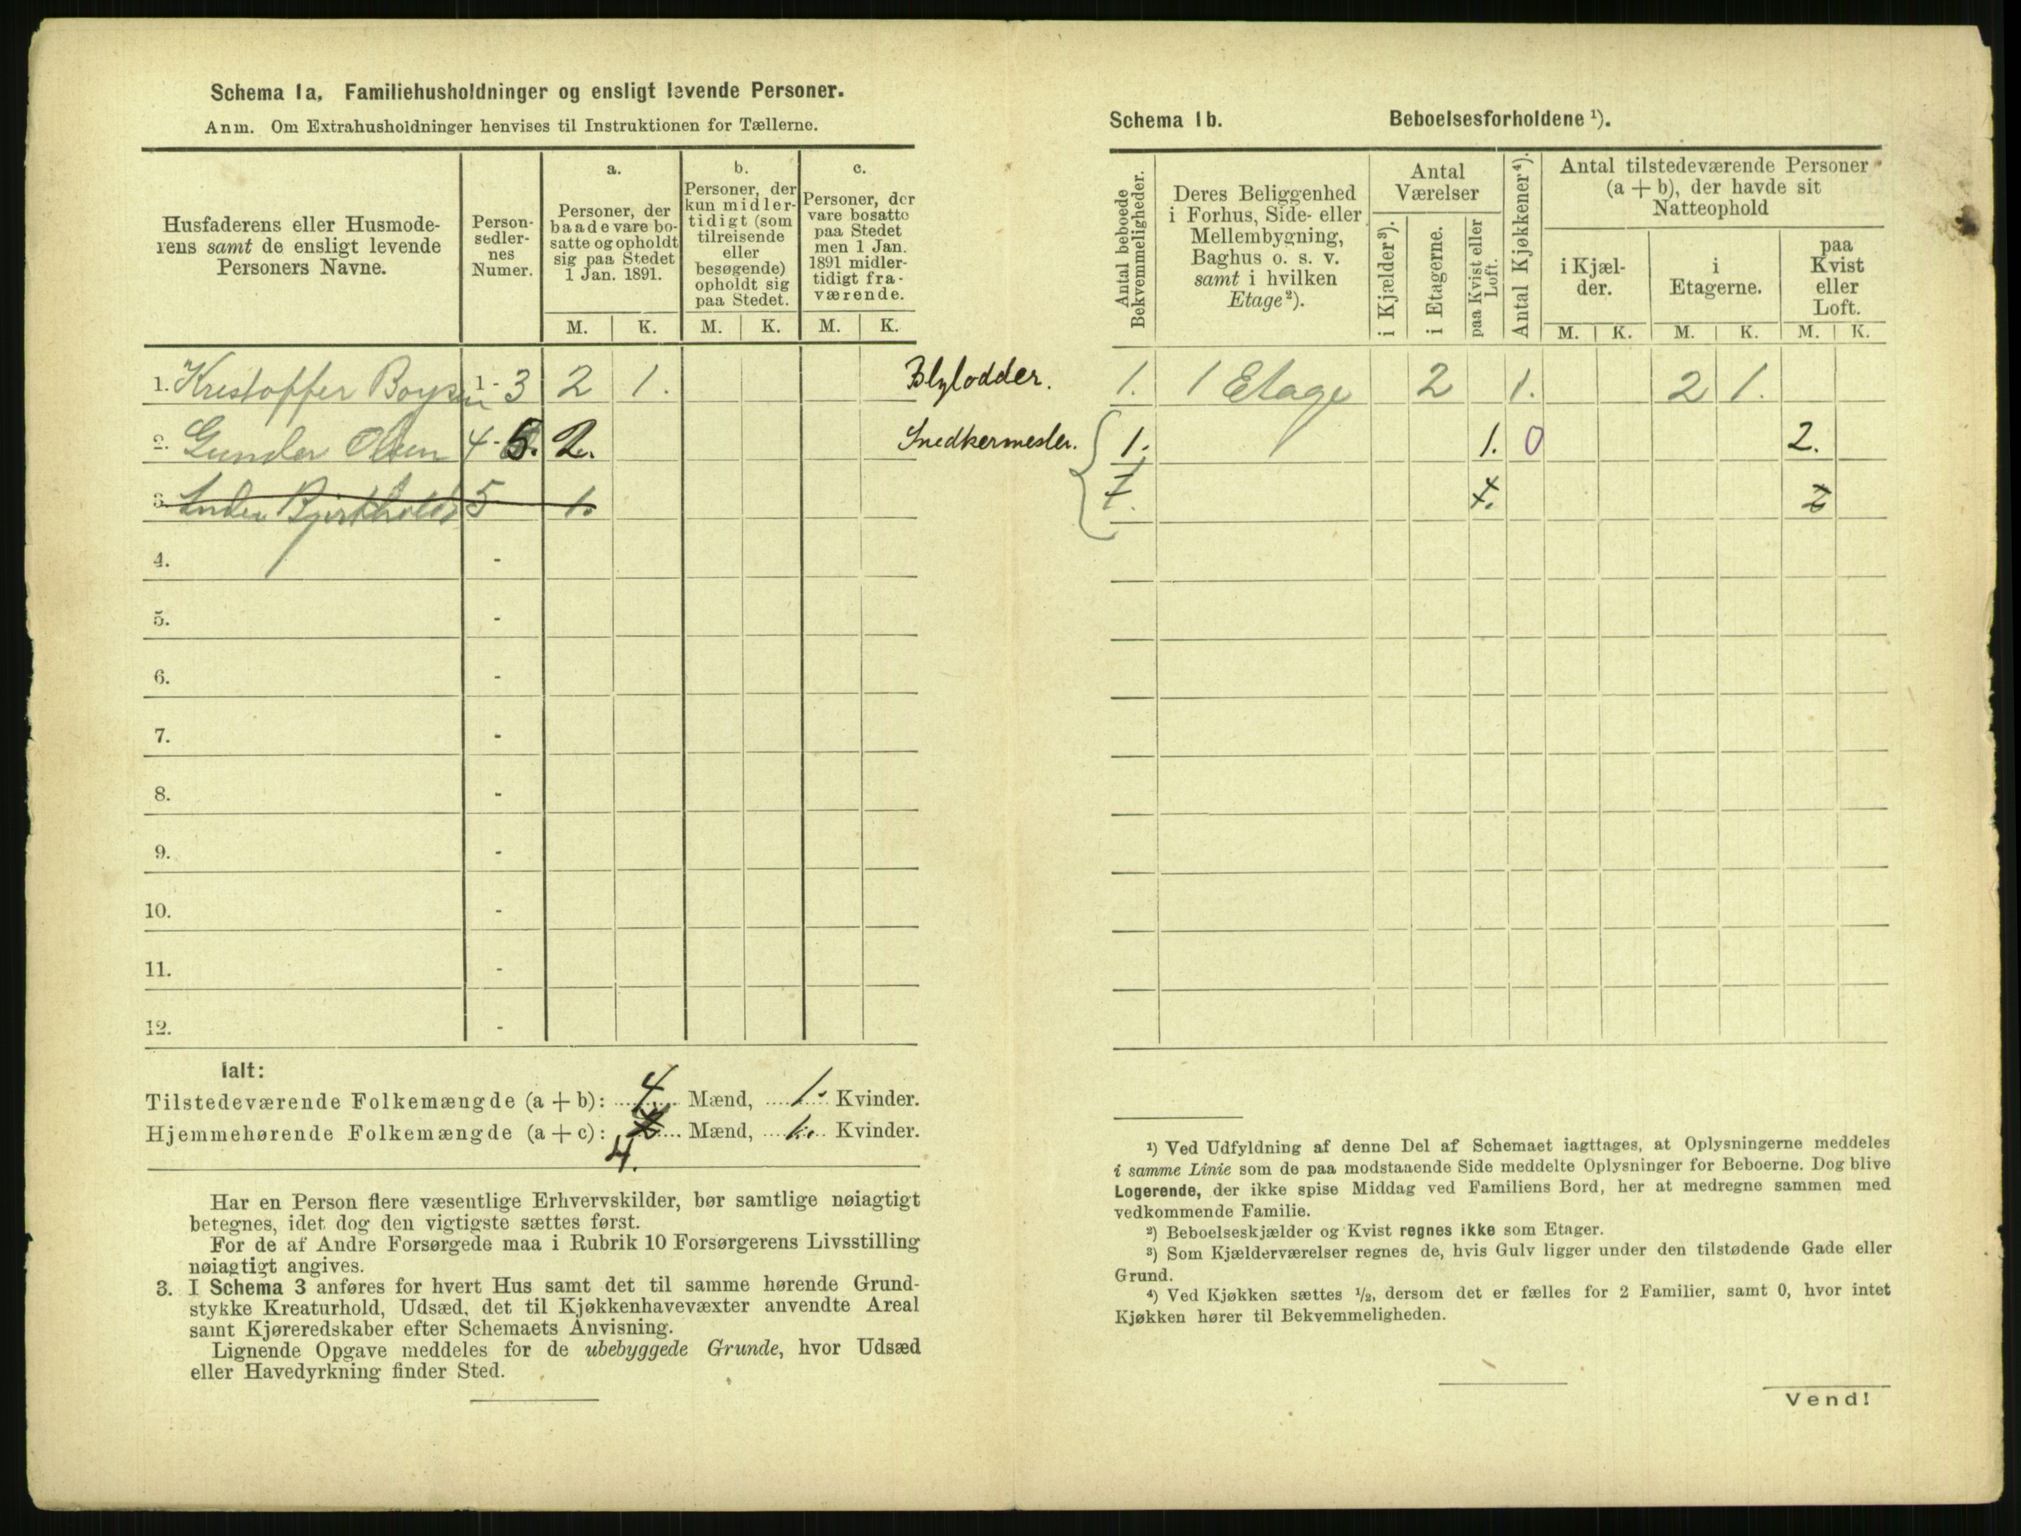 Schema 1a. Familiehusholdninger og ensligt levende Personer.
Anm. Om Extrahusholdninger henvises til Instruktionen for Tællerne.
Husfaderens eller Husmode-
rens samt de ensligt levende
Personers Navne.
Person-
sedler-
nes
Numer.
a.
Personer, der
baade vare bo-
satte og opholdt
sig paa Stedet
1 Jan. 1891.
b.
Personer, der
kun midler-
tidigt (som
tilreisende
eller
besøgende)
opholdt sig
paa Stedet.
c.
Personer, der
vare bosatte
paa Stedet
men 1 Jan.
1891 midler-
tidigt fra-
værende.
M. K. M. K. M. K.
1. Kristoffer Boysen 1 - 3 2 1. Blylodder.
2. Gunder Olsen 4 - 5. 2. Snedkermester.
3. 5 1.
4. -
5. -
6. -
7. -
8. -
9. -
10. -
11. -
12. -
Ialt:
Tilstedeværende Folkemængde (a + b): 4 Mænd, 1. Kvinder.
Hjemmehørende Folkemængde (a + c): 4. Mænd, 1. Kvinder.
Har en Person flere væsentlige Erhvervskilder, bør samtlige nøiagtigt
betegnes, idet dog den vigtigste sættes først.
For de af Andre Forsørgede maa i Rubrik 10 Forsørgerens Livsstilling
nøiagtigt angives.
3. I Schema 3 anføres for hvert Hus samt det til samme hørende Grund-
stykke Kreaturhold, Udsæd, det til Kjøkkenhavevæxter anvendte Areal
samt Kjøreredskaber efter Schemaets Anvisning.
Lignende Opgave meddeles for de ubebyggede Grunde, hvor Udsæd
eller Havedyrkning finder Sted.
Schema 1b. Beboelsesforholdene ¹).
Antal beboede
Bekvemmeligheder.
Deres Beliggenhed
i Forhus, Side- eller
Mellembygning,
Baghus o. s. v.
samt i hvilken
Etage ²).
Antal
Værelser
i Kjælder ³).
i Etagerne.
paa Kvist eller
Loft.
Antal Kjøkkener ⁴).
Antal tilstedeværende Personer
(a + b), der havde sit
Natteophold
i Kjæl-
der.
i
Etagerne.
paa
Kvist
eller
Loft.
M. K. M. K. M. K.
1. 1 Etage 2 1. 2 1.
1. 1. 0 2.
1. 1.
¹) Ved Udfyldning af denne Del af Schemaet iagttages, at Oplysningerne meddeles
i samme Linie som de paa modstaaende Side meddelte Oplysninger for Beboerne. Dog blive
Logerende, der ikke spise Middag ved Familiens Bord, her at medregne sammen med
vedkommende Familie.
²) Beboelseskjælder og Kvist regnes ikke som Etager.
³) Som Kjælderværelser regnes de, hvis Gulv ligger under den tilstødende Gade eller
Grund.
⁴) Ved Kjøkken sættes ½, dersom det er fælles for 2 Familier, samt 0, hvor intet
Kjøkken hører til Bekvemmeligheden.
Vend!